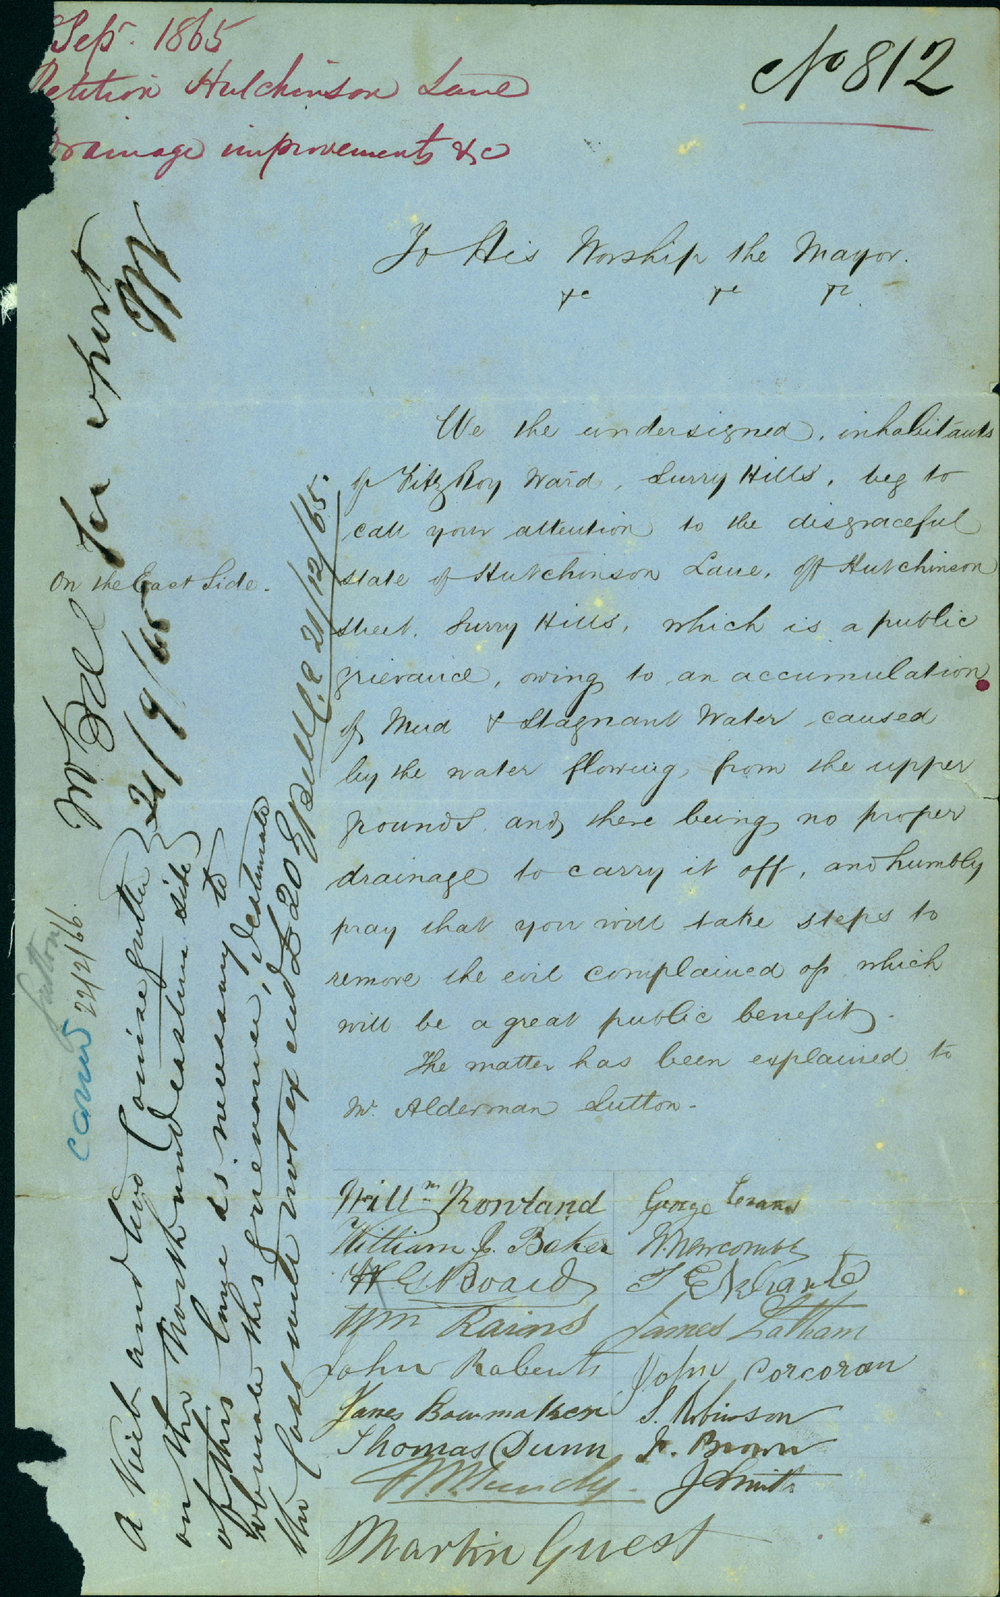 Sep. 1865
Petition Hutchinson Lane
Drainage improvements &c
No 812
To His Worship the Mayor.
&c &c &c.
We the undersigned, inhabitants
of FitzRoy Ward, Surry Hills, beg to
call your attention to the disgraceful
state of Hutchinson Lane, off Hutchinson
street, Surry Hills, which is a public
grievance, owing to an accumulation
of Mud & Stagnant Water caused
by the water flowing, from the upper
grounds, and there being no proper
drainage to carry it off, and humbly
pray that you will take steps to
remove the evil complained of which
will be a great public benefit.
The matter has been explained to
Mr. Alderman Sutton.
Willm Rowland
George
William J. Baker
W. Newcombe
H E Board
Wm Rains
James Latham
John Roberts
John Corcoran
James Bowmaker
S. Robinson
Thomas Dunn
Jn. Brown
Mundy
J Smith
Martin Guest
On the East Side.
Mr Bell for report
21/9/65
A Kerb and two course gutter
on the North and eastern side
of this lane is necessary to
the grievance, I estimate
the cost will not exceed £20 E Bell C.S 21/12/65
Sutton
22/2/66